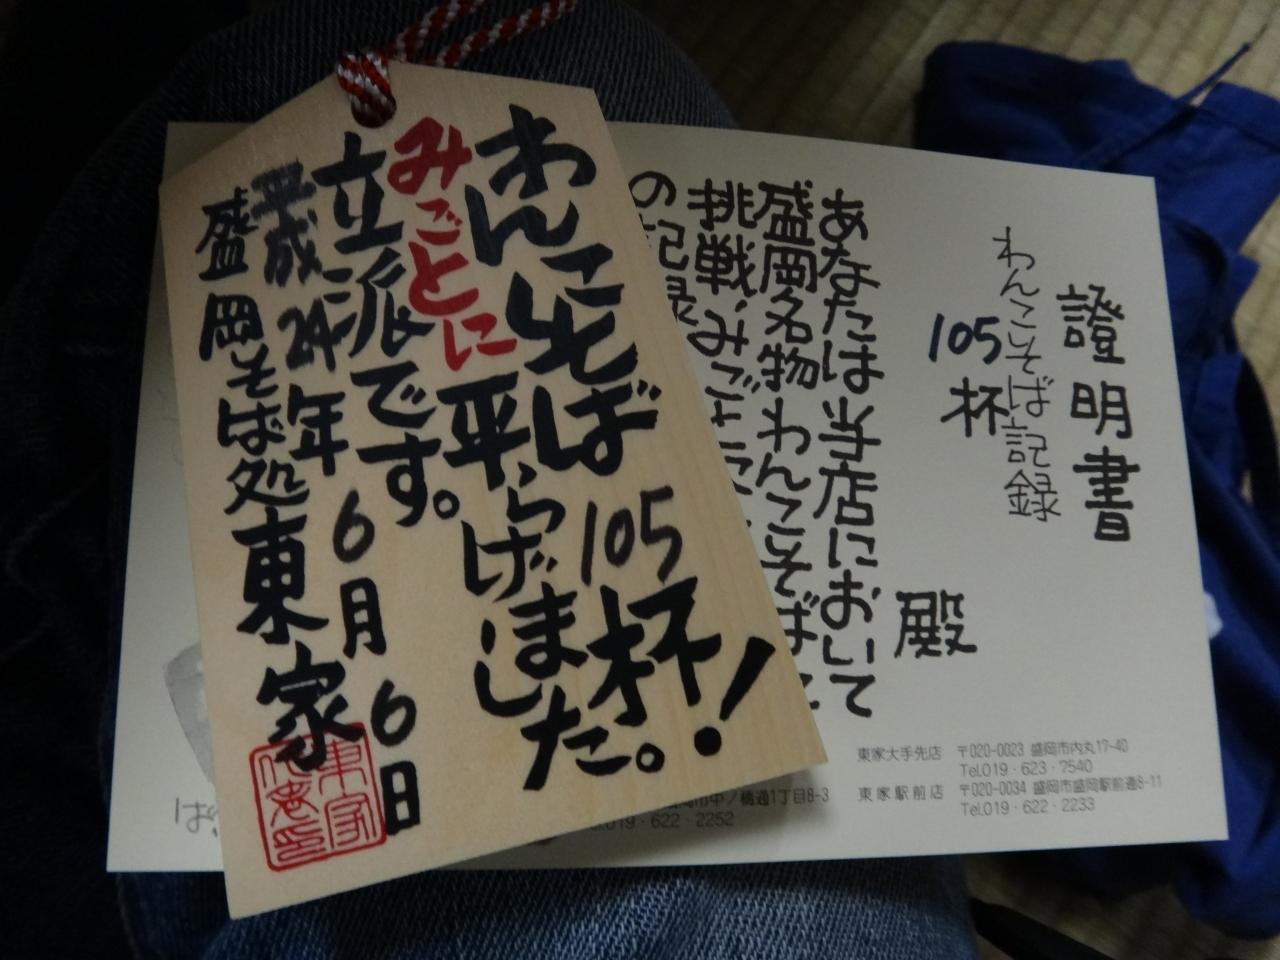 わんこそば105杯！
みごとに平らげました。
立派です。
平成24年6月6日
盛岡そば処東家
證明書
わんこそば記録
105杯
殿
あなたは当店において
盛岡名物わんこそばに
挑戦、みごと
の記録
東家大手先店 〒020-0023 盛岡市内丸17-40
Tel.019・623・7540
東家駅前店 〒020-0034 盛岡市盛岡駅前通8-11
Tel.019・622・2233
中ノ橋通1丁目8-3
019・622・2252